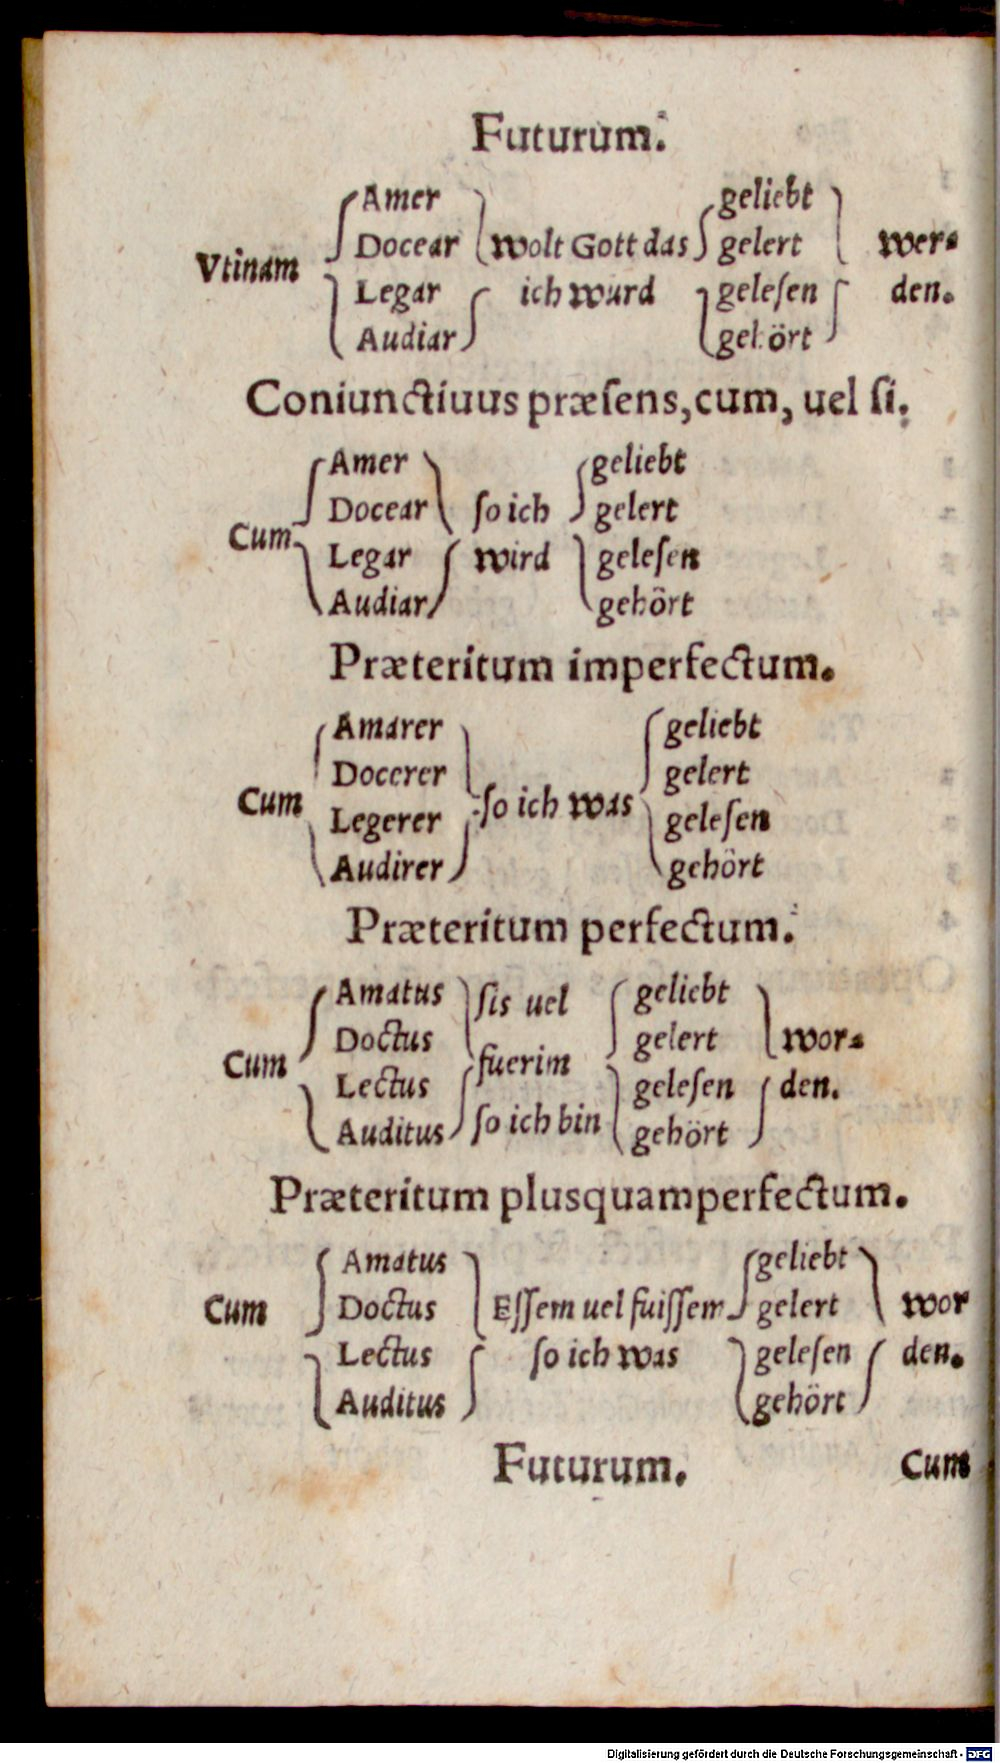 Futurum.
Amer geliebt
Docear wolt Gott das gelert wer-
Vtinam
Legar ich wurd gelesen den.
Audiar gehört
Coniunctiuus præsens, cum, uel si.
Amer geliebt
Docear so ich gelert
Cum
Legar wird gelesen
Audiar gehört
Præteritum imperfectum.
Amarer geliebt
Docerer gelert
Cum so ich was
Legerer gelesen
Audirer gehört
Præteritum perfectum.
Amatus sis uel geliebt
Doctus gelert wor-
Cum fuerim
Lectus gelesen den.
Auditus so ich bin gehört
Præteritum plusquamperfectum.
Amatus geliebt
Cum Doctus Essem uel fuissem gelert wor
Lectus so ich was gelesen den.
Auditus gehört
Futurum. Cum
Digitalisierung gefördert durch die Deutsche Forschungsgemeinschaft - DFG